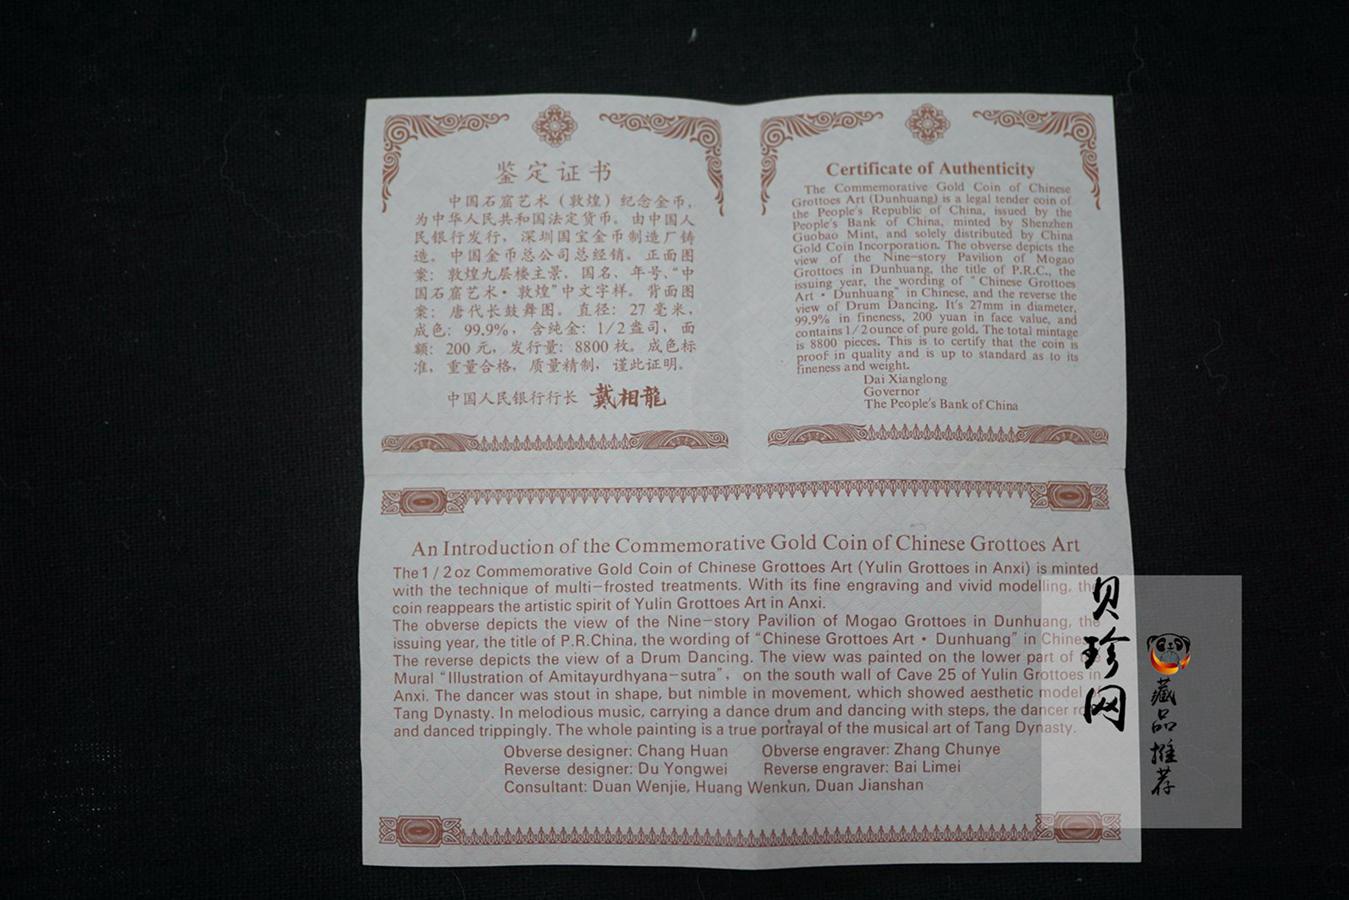 鉴定证书
中国石窟艺术（敦煌）纪念金币，
为中华人民共和国法定货币。由中国人
民银行发行，深圳国宝金币制造厂铸
造。中国金币总公司总经销。正面图
案：敦煌九层楼主景、国名、年号、“中
国石窟艺术·敦煌”中文字样。背面图
案：唐代长鼓舞图。直径：27毫米，
成色：99.9%，含纯金：1/2盎司，面
额：200元，发行量：8800枚。成色标
准，重量合格，质量精制，谨此证明。
中国人民银行行长 戴相龍
Certificate of Authenticity
The Commemorative Gold Coin of Chinese
Grottoes Art (Dunhuang) is a legal tender coin of
the People's Republic of China, issued by the
People's Bank of China, minted by Shenzhen
Guobao Mint, and solely distributed by China
Gold Coin Incorporation. The obverse depicts the
view of the Nine-story Pavilion of Mogao
Grottoes in Dunhuang, the title of P.R.C., the
issuing year, the wording of "Chinese Grottoes
Art · Dunhuang" in Chinese, and the reverse the
view of Drum Dancing. It's 27mm in diameter,
99.9% in fineness, 200 yuan in face value, and
contains 1/2 ounce of pure gold. The total mintage
is 8800 pieces. This is to certify that the coin is
proof in quality and is up to standard as to its
fineness and weight.
Dai Xianglong
Governor
The People's Bank of China
An Introduction of the Commemorative Gold Coin of Chinese Grottoes Art
The 1/2 oz Commemorative Gold Coin of Chinese Grottoes Art (Yulin Grottoes in Anxi) is minted
with the technique of multi-frosted treatments. With its fine engraving and vivid modelling, the
coin reappears the artistic spirit of Yulin Grottoes Art in Anxi.
The obverse depicts the view of the Nine-story Pavilion of Mogao Grottoes in Dunhuang, the
issuing year, the title of P.R.China, the wording of "Chinese Grottoes Art · Dunhuang" in Chinese.
The reverse depicts the view of a Drum Dancing. The view was painted on the lower part of
Mural "Illustration of Amitayurdhyana-sutra", on the south wall of Cave 25 of Yulin Grottoes in
Anxi. The dancer was stout in shape, but nimble in movement, which showed aesthetic model of
Tang Dynasty. In melodious music, carrying a dance drum and dancing with steps, the dancer
and danced trippingly. The whole painting is a true portrayal of the musical art of Tang Dynasty.
Obverse designer: Chang Huan Obverse engraver: Zhang Chunye
Reverse designer: Du Yongwei Reverse engraver: Bai Limei
Consultant: Duan Wenjie, Huang Wenkun, Duan Jianshan
贝珍网
藏品推荐